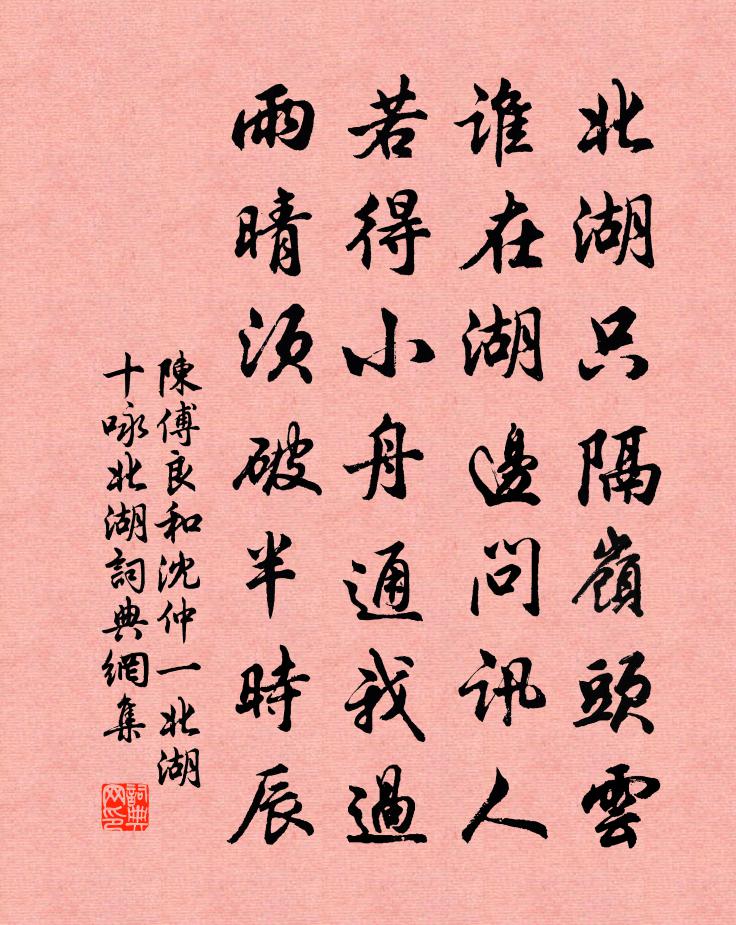 北湖只隔嶺頭雲
誰在湖邊問訊人
若得小舟通我過
雨晴須破半時辰
陳傅良和沈仲一北湖
十咏北湖詞典網集
詞典
网印